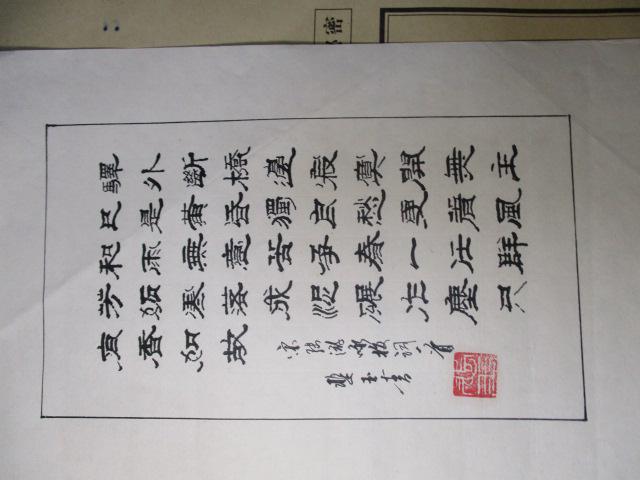 驛外斷橋邊寂寞開無主
已是黃昏獨自愁更著風
和雨無意苦爭春一任群
芳妬零落成泥碾作塵只
有香如故
宋陸游咏梅詞一首
玉書
密